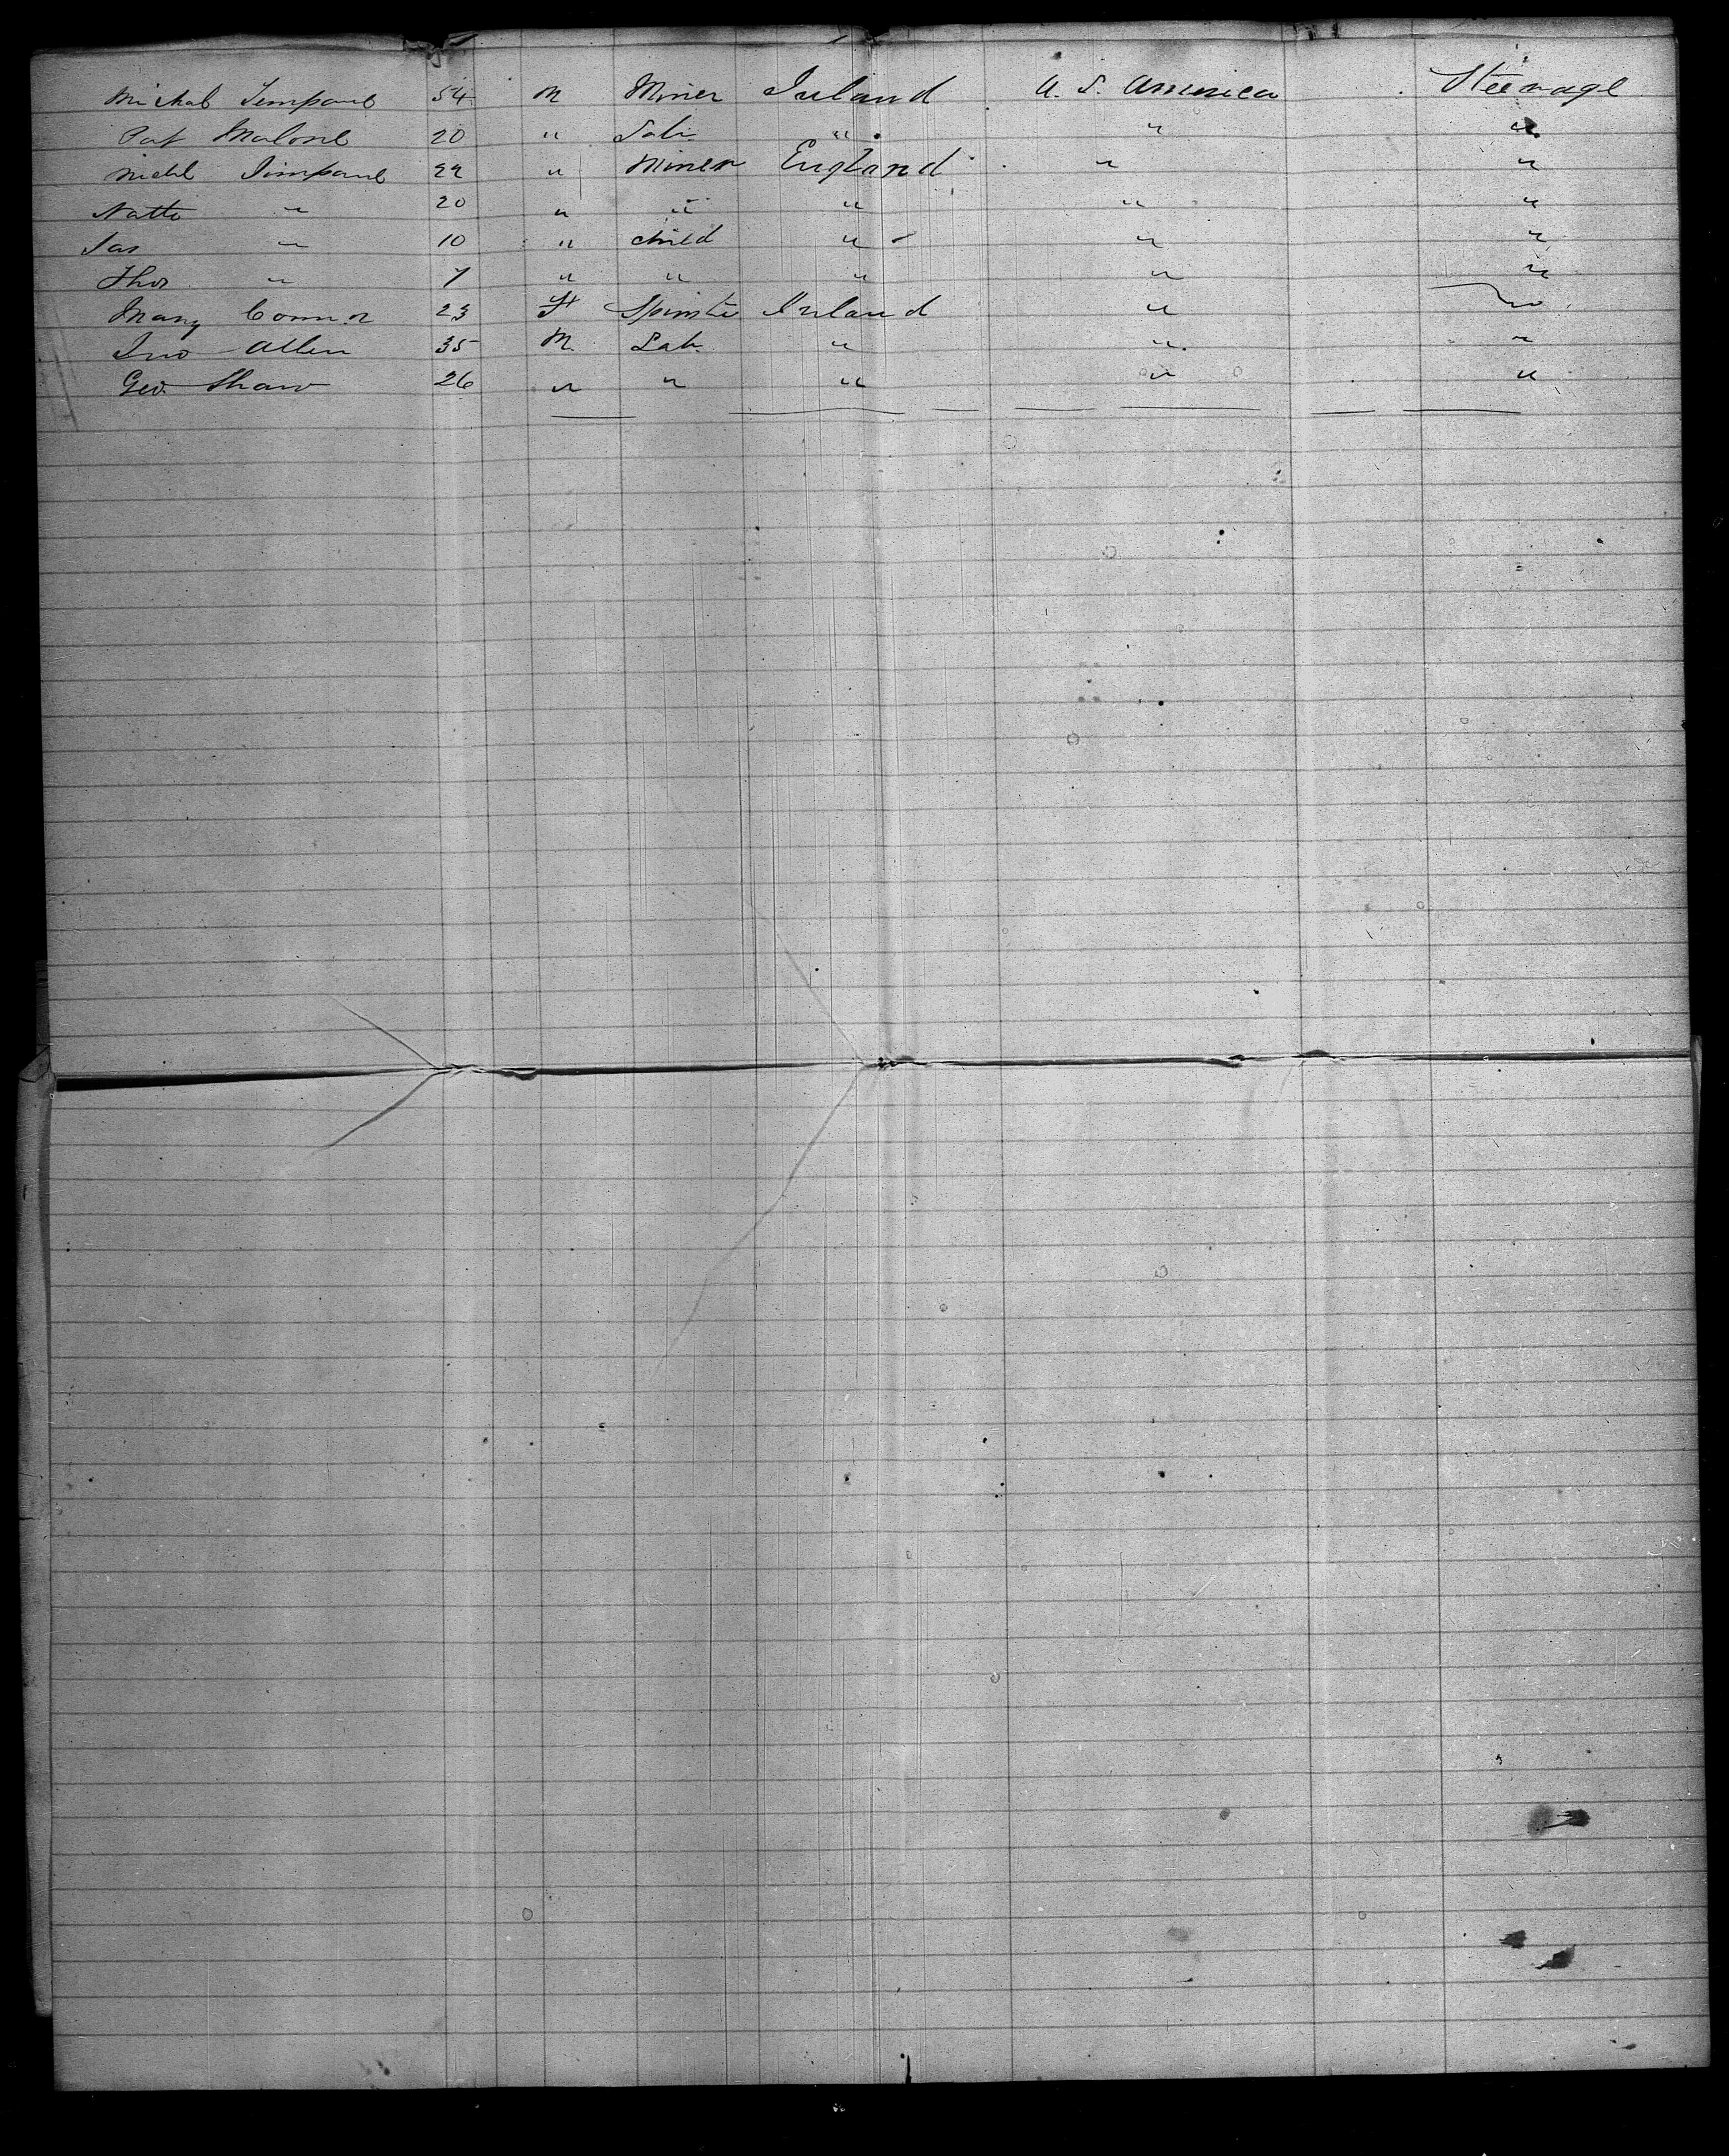 Michal Timpane 54 M Miner Ireland U. S. America Steerage
Pat Malone 20 " Lab. " " "
Michl Timpane 22 " Miner England " "
Natte " 20 " " " " "
Jas " 10 " child " " "
Thos " 7 " " " " "
Mary Connor 23 F Spinster Ireland " "
Jno Allen 35 M. Lab. " " "
Geo. Shaw 26 " " " " "